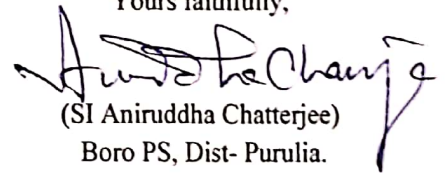 Yours faithfully,
Aniruddha Chatterjee
(SI Aniruddha Chatterjee)
Boro PS, Dist- Purulia.